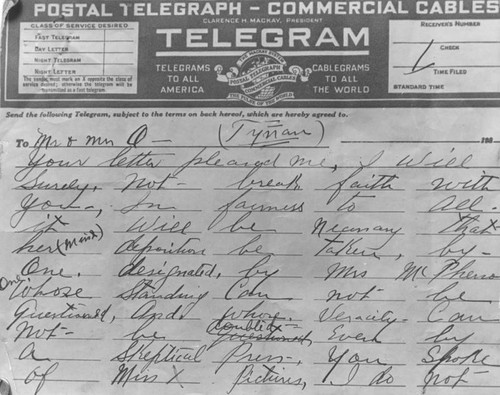 POSTAL TELEGRAPH - COMMERCIAL CABLES
CLARENCE H. MACKAY, PRESIDENT
RECEIVER'S NUMBER
CLASS OF SERVICE DESIRED
FAST TELEGRAM
DAY LETTER
NIGHT TELEGRAM
NIGHT LETTER
The sender must mark an X opposite the class of service desired; otherwise the telegram will be transmitted as a fast telegram.
TELEGRAM
TELEGRAMS TO ALL AMERICA
THE MACKAY SYSTEM
POSTAL TELEGRAPH
COMMERCIAL CABLES
CABLEGRAMS TO ALL THE WORLD
CHECK
TIME FILED
STANDARD TIME
Send the following Telegram, subject to the terms on back hereof, which are hereby agreed to.
To Mr & Mrs O- (Tynan) 192
Your letter pleased me, I will
surely, not- break faith with
you-, in fairness to all-
it will be nicessary that
her (Maid) deposition be taken, by-
One, designated, by Mrs McPherso
One whose standing can not- be
questioned, and, whose, veracity- can
not- be doubted questioned, even by
a skeptical press, You spoke
of Miss X pictures, I do not-